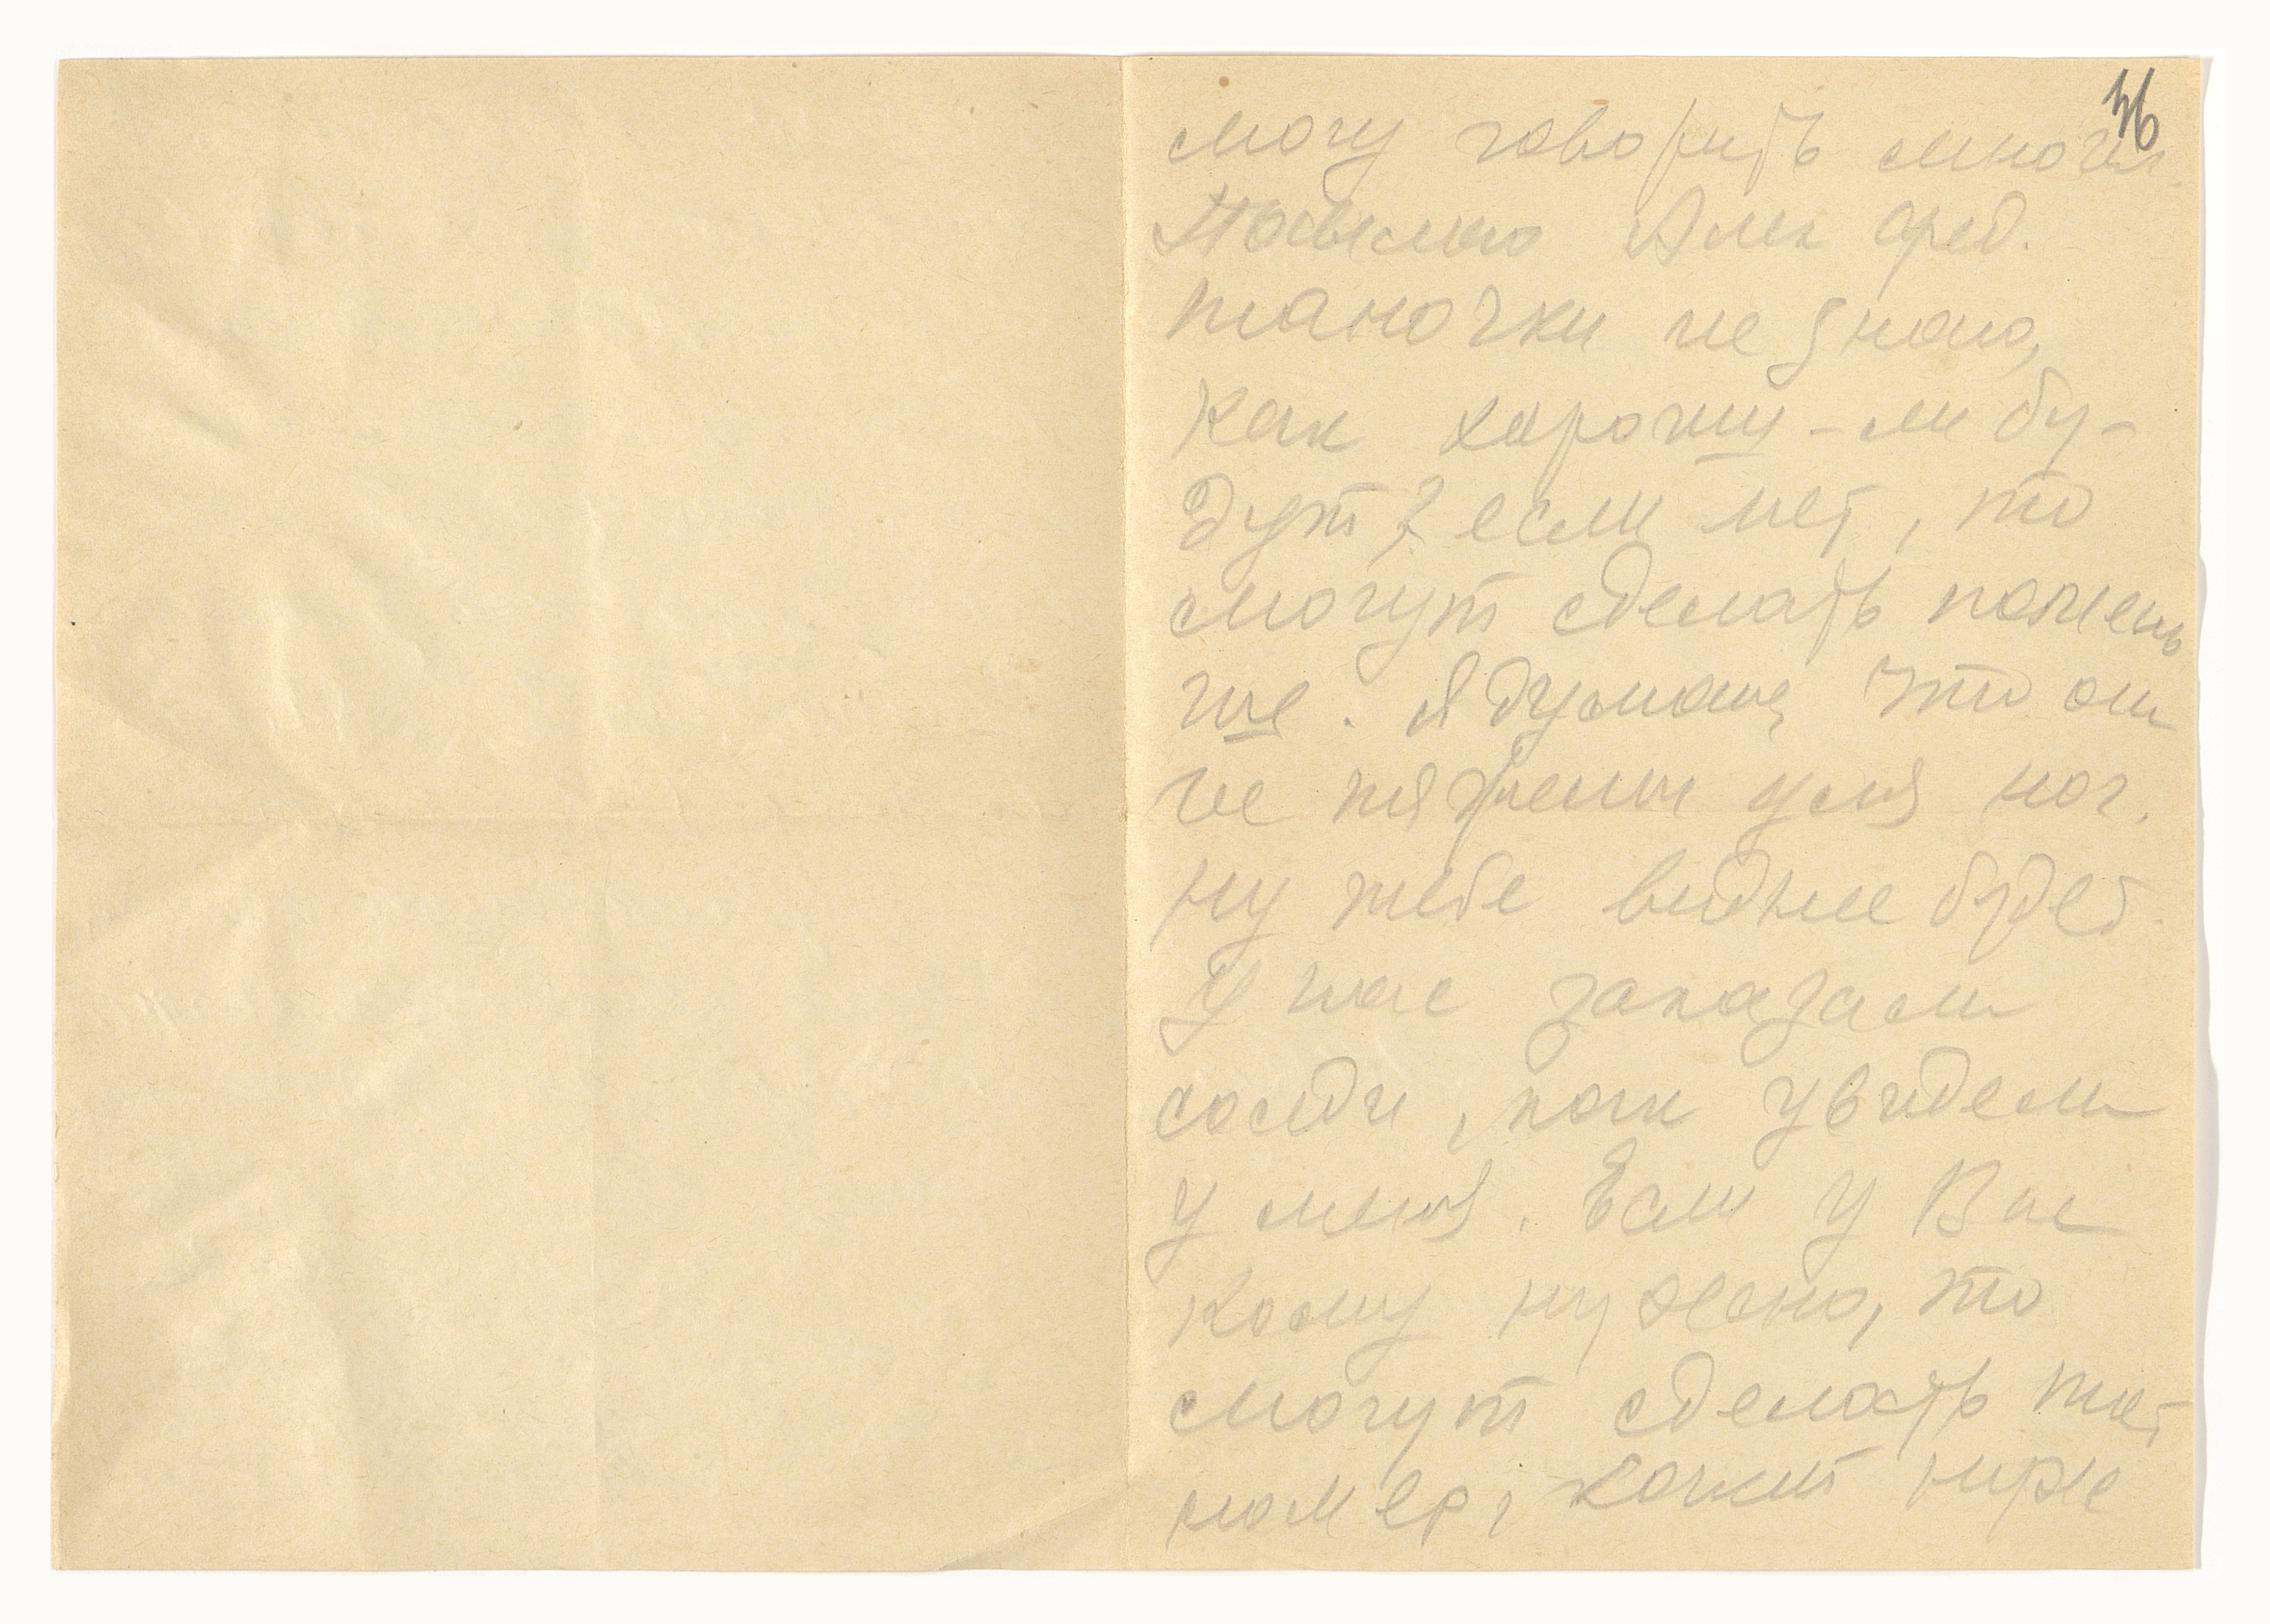 36
могу говорить многим.
Посылаю Алек Фред.
тапочки не знаю,
как хороши – ли бу-
дут? если нет, то
могут сделать помень
ше. Я думаю, что они
не тяжелы для ног.
ну тебе виднее будет.
У нас заказали
соседи, как увидели
у меня. Если у Вас
кому нужно, то
могут сделать тот
номер, какой нуже